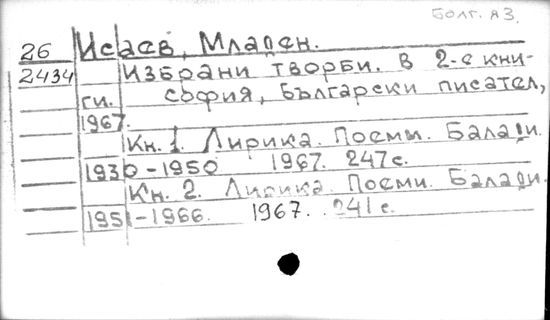 Болг. яз.
26 Исаев, Младен.
2434 Избрани творби. В 2-е кни-
ги. София, Български писател,
1967.
Кн. 1. Лирика. Поемы. Балади.
1930-1950 1967. 247 с.
Кн. 2. Лирика. Поеми. Балади.
1951-1966. 1967. 241 с.